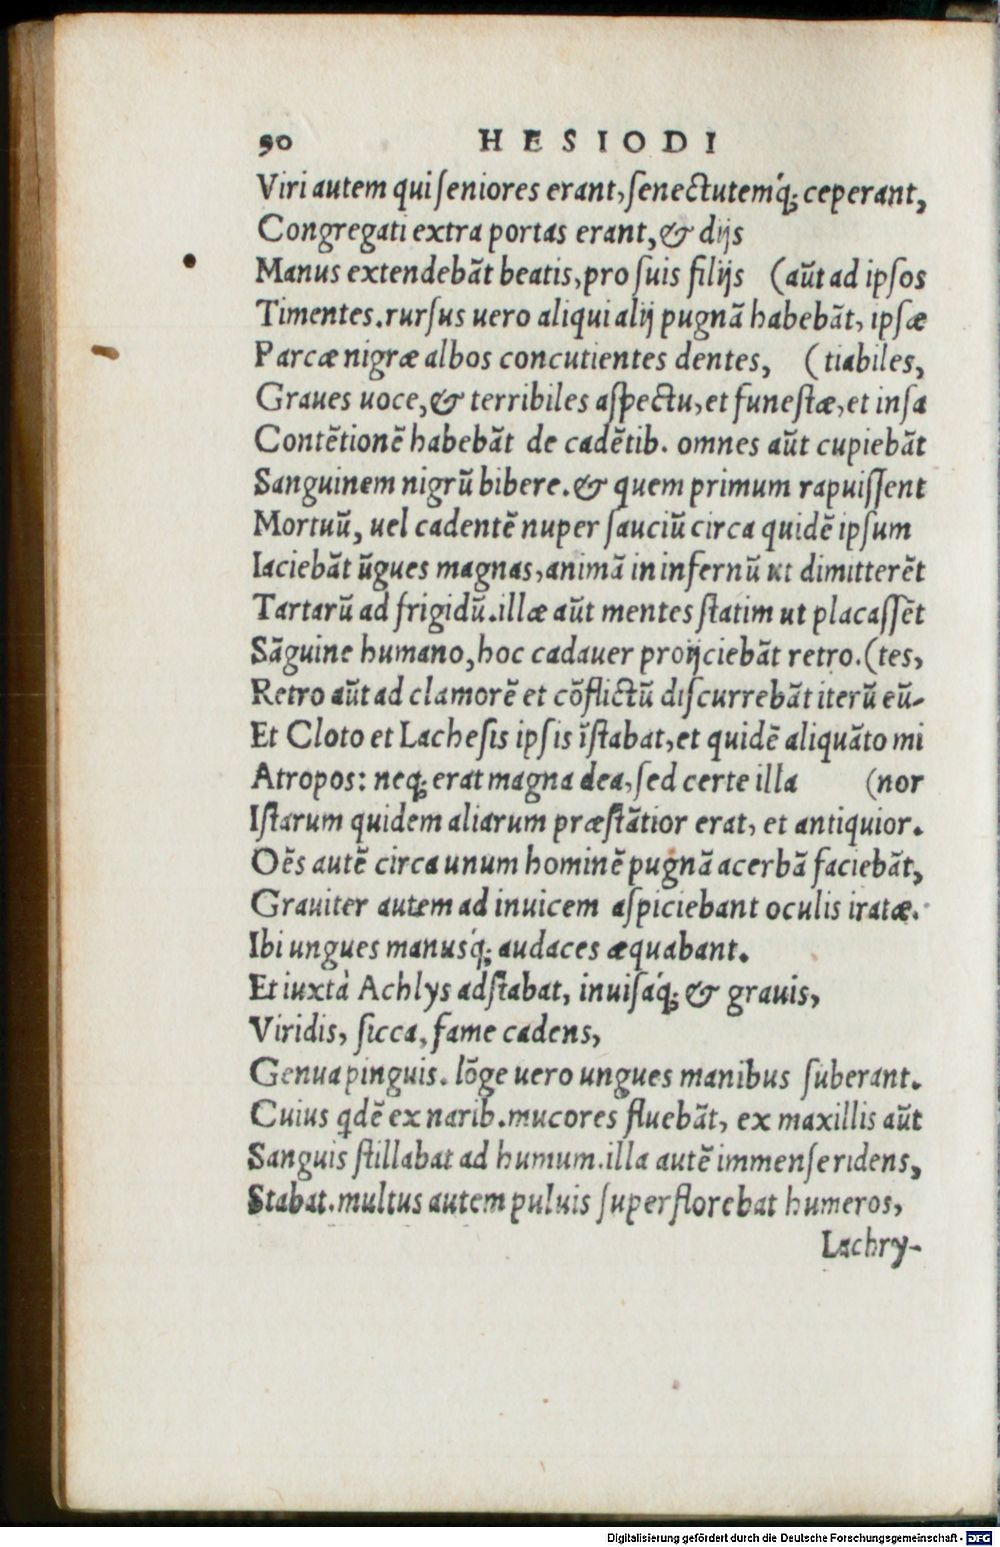 90 HESIODI
Viri autem qui ſeniores erant, ſenectutemq́; ceperant,
Congregati extra portas erant, & dijs
Manus extendebāt beatis, pro ſuis filijs (aūt ad ipſos
Timentes. rurſus uero aliqui alij pugnā habebāt, ipſæ
Parcæ nigræ albos concutientes dentes, (tiabiles,
Graues uoce, & terribiles aſpectu, et funeſtæ, et inſa
Contētionē habebāt de cadētib. omnes aūt cupiebāt
Sanguinem nigrū bibere. & quem primum rapuiſſent
Mortuū, uel cadentē nuper ſauciū circa quidē ipſum
Iaciebāt ūgues magnas, animā in infernū ut dimitterēt
Tartarū ad frigidū. illæ aūt mentes ſtatim ut placaſſēt
Sāguine humano, hoc cadauer proijciebāt retro. (tes,
Retro aūt ad clamorē et cōflictū diſcurrebāt iterū eū-
Et Cloto et Lacheſis ipſis īſtabat, et quidē aliquāto mi
Atropos: neq; erat magna dea, ſed certe illa (nor
Iſtarum quidem aliarum præſtātior erat, et antiquior.
Oēs autē circa unum hominē pugnā acerbā faciebāt,
Grauiter autem ad inuicem aſpiciebant oculis iratæ.
Ibi ungues manusq́; audaces æquabant.
Et iuxtà Achlys adſtabat, inuiſaq́; & grauis,
Viridis, ſicca, fame cadens,
Genua pinguis. lōge uero ungues manibus ſuberant.
Cuius qdē ex narib. mucores fluebāt, ex maxillis aūt
Sanguis ſtillabat ad humum. illa autē immenſe ridens,
Stabat. multus autem puluis ſuper florebat humeros,
Lachry-
Digitalisierung gefördert durch die Deutsche Forschungsgemeinschaft - DFG